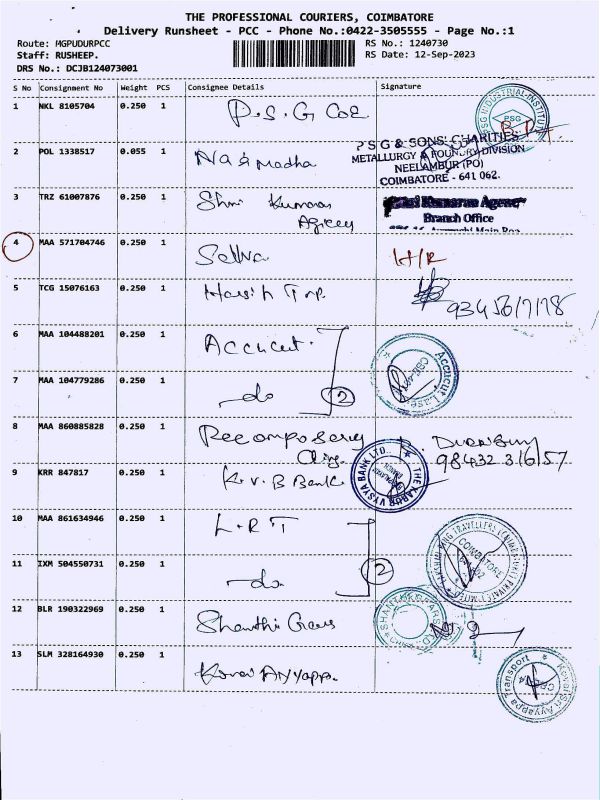 THE PROFESSIONAL COURIERS, COIMBATORE
Delivery Runsheet - PCC - Phone No.:0422-3505555 - Page No.:1
Route: MGPUDURPCC
Staff: RUSHEEP.
DRS No.: DCJB124073001
RS No.: 1240730
RS Date: 12-Sep-2023
S No Consignment No Weight PCS Consignee Details Signature
1 NKL 8105704 0.250 1 P.S.G COE
PSG INDUSTRIAL INSTITUTE
PSG
2 POL 1338517 0.055 1
P S G & SONS' CHARITIES
METALLURGY & FOUNDRY DIVISION
NEELAMBUR (PO)
COIMBATORE - 641 062.
3 TRZ 61007876 0.250 1 Shri Kumaran
Agency
Kumaran Agency
Branch Office
Main Roa
4 MAA 571704746 0.250 1 Selva H/R
5 TCG 15076163 0.250 1 Harsih
6 MAA 104488201 0.250 1 Accucut.
7 MAA 104779286 0.250 1 do 2
Accucut Laser
CBE
8 MAA 860885828 0.250 1
9843231657
9 KRR 847817 0.250 1 K.V.B Bank
THE KARUR VYSYA BANK LTD.
10 MAA 861634946 0.250 1 L.R.T
11 IXM 504550731 0.250 1 do 2
COIMBATORE
12 BLR 190322969 0.250 1 Shanthi Gears
SHANTHI GEARS
13 SLM 328164930 0.250 1 Kovai Ayyappa.
Kovai Sri Ayyappa Transport